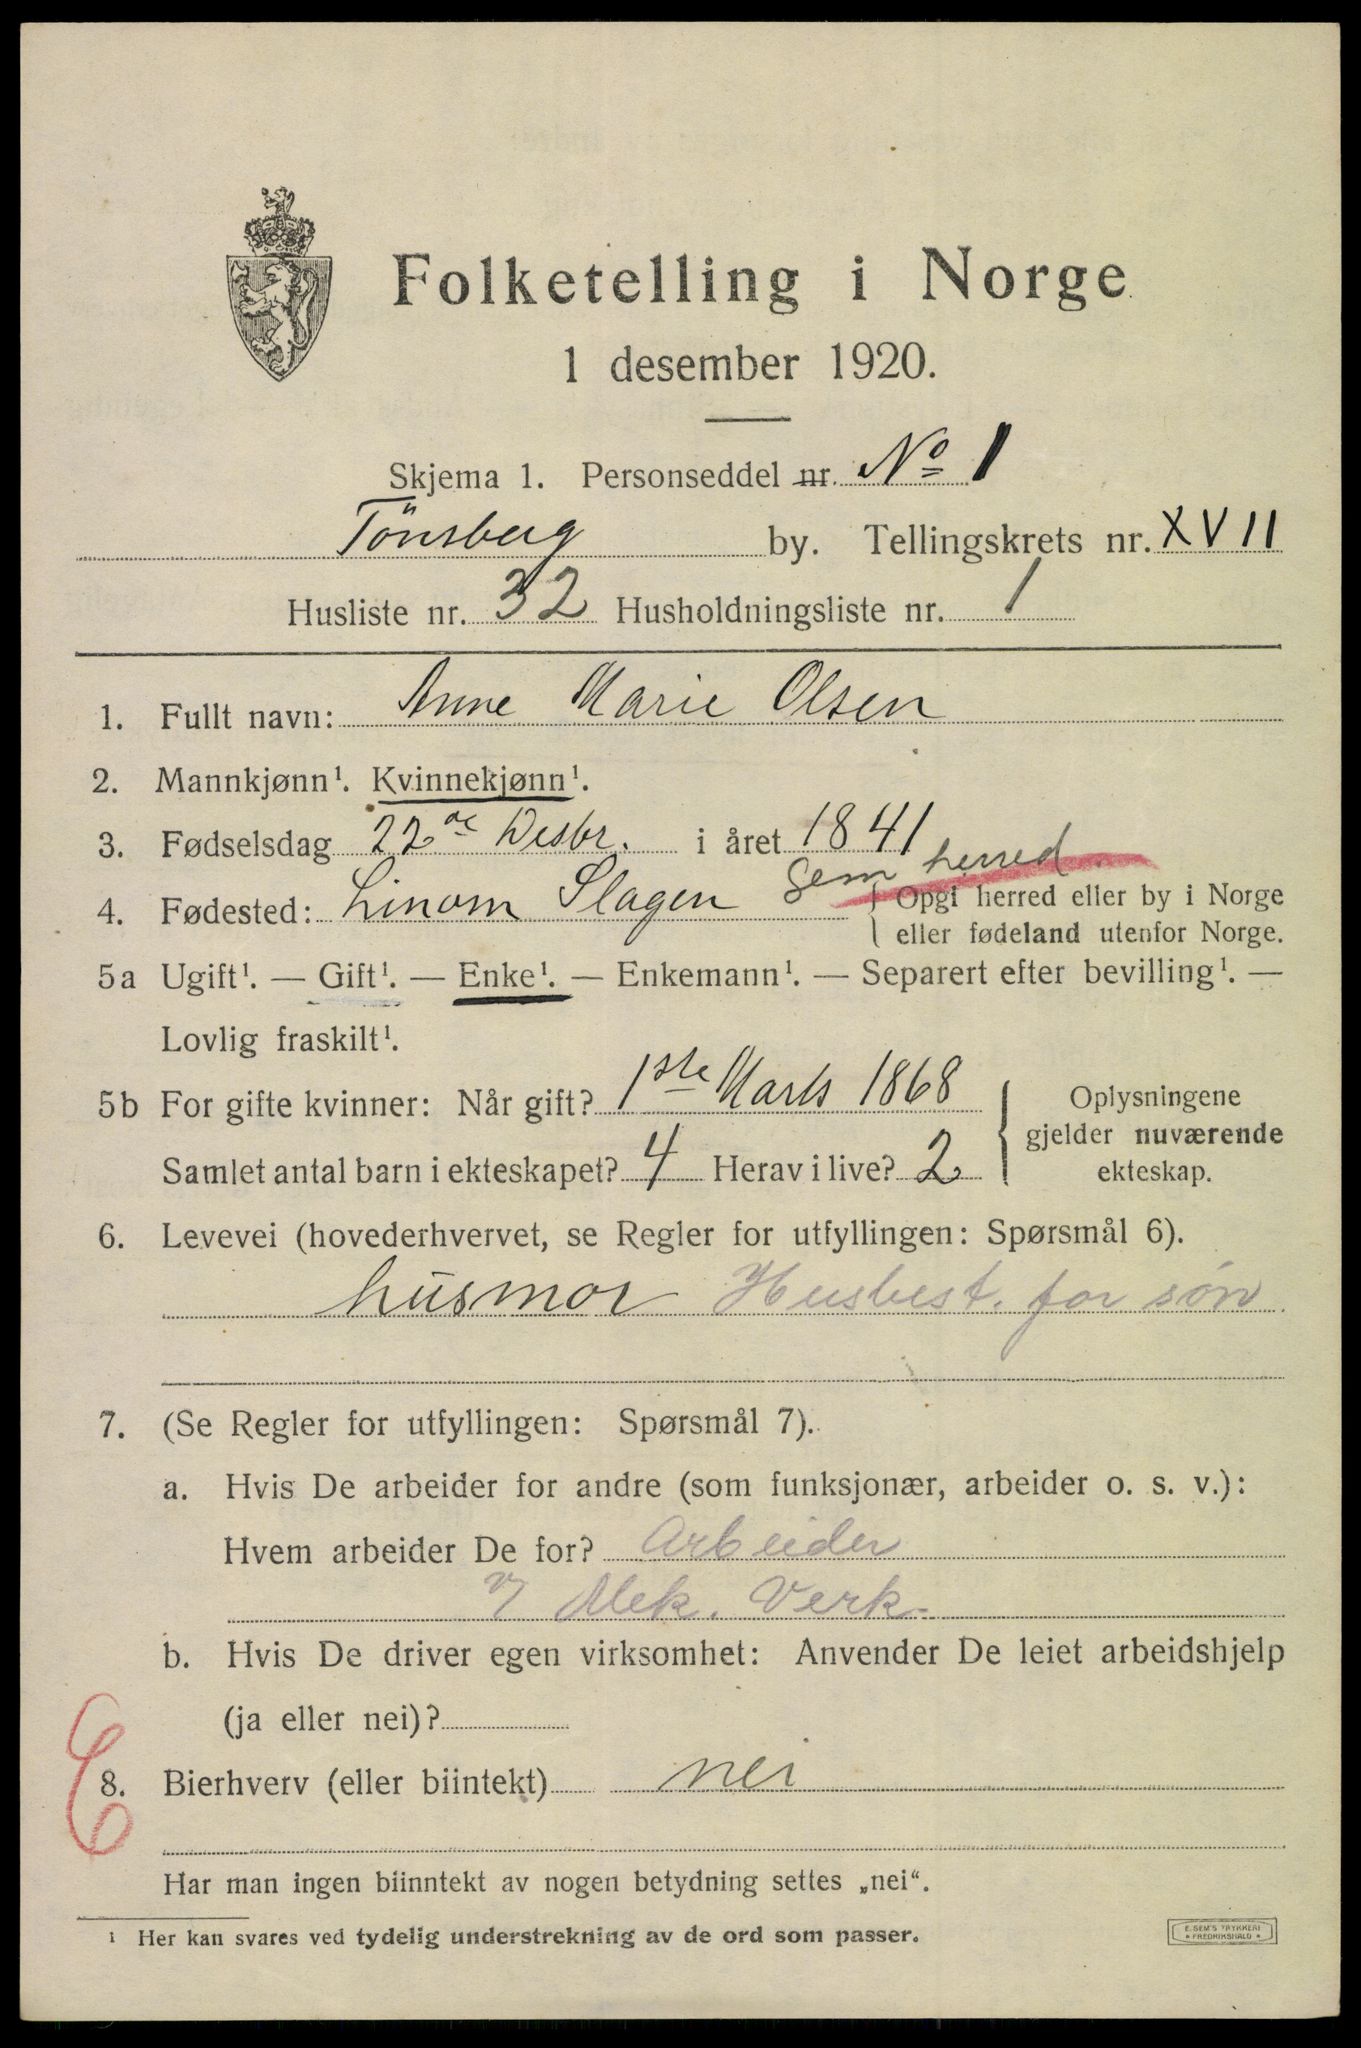 Folketelling i Norge
1 desember 1920.
Skjema 1. Personseddel nr. No 1
Tönsberg by. Tellingskrets nr. XVII
Husliste nr. 32 Husholdningsliste nr. 1
1. Fullt navn: Anne Marie Olsen
2. Mannkjønn¹. Kvinnekjønn¹.
3. Fødselsdag 22de Desbr. i året 1841
Sem herred
4. Fødested: Linom Slagen { Opgi herred eller by i Norge
eller fødeland utenfor Norge.
5a Ugift¹. — Gift¹. — Enke¹. — Enkemann¹. — Separert efter bevilling¹. —
Lovlig fraskilt¹.
5b For gifte kvinner: Når gift? 1ste Marts 1868 { Oplysningene
gjelder nuværende
Samlet antal barn i ekteskapet? 4 Herav i live? 2 ekteskap.
6. Levevei (hovederhvervet, se Regler for utfyllingen: Spørsmål 6).
husmor Husbest. for søn
7. (Se Regler for utfyllingen: Spørsmål 7).
a. Hvis De arbeider for andre (som funksjonær, arbeider o. s. v.):
Hvem arbeider De for? Arbeider
v/ Mek. Verk.
b. Hvis De driver egen virksomhet: Anvender De leiet arbeidshjelp
(ja eller nei)?
E
8. Bierhverv (eller biintekt) nei
Har man ingen biinntekt av nogen betydning settes „nei“.
¹ Her kan svares ved tydelig understrekning av de ord som passer.
E. SEM'S TRYKKERI
* FREDRIKSHALD *